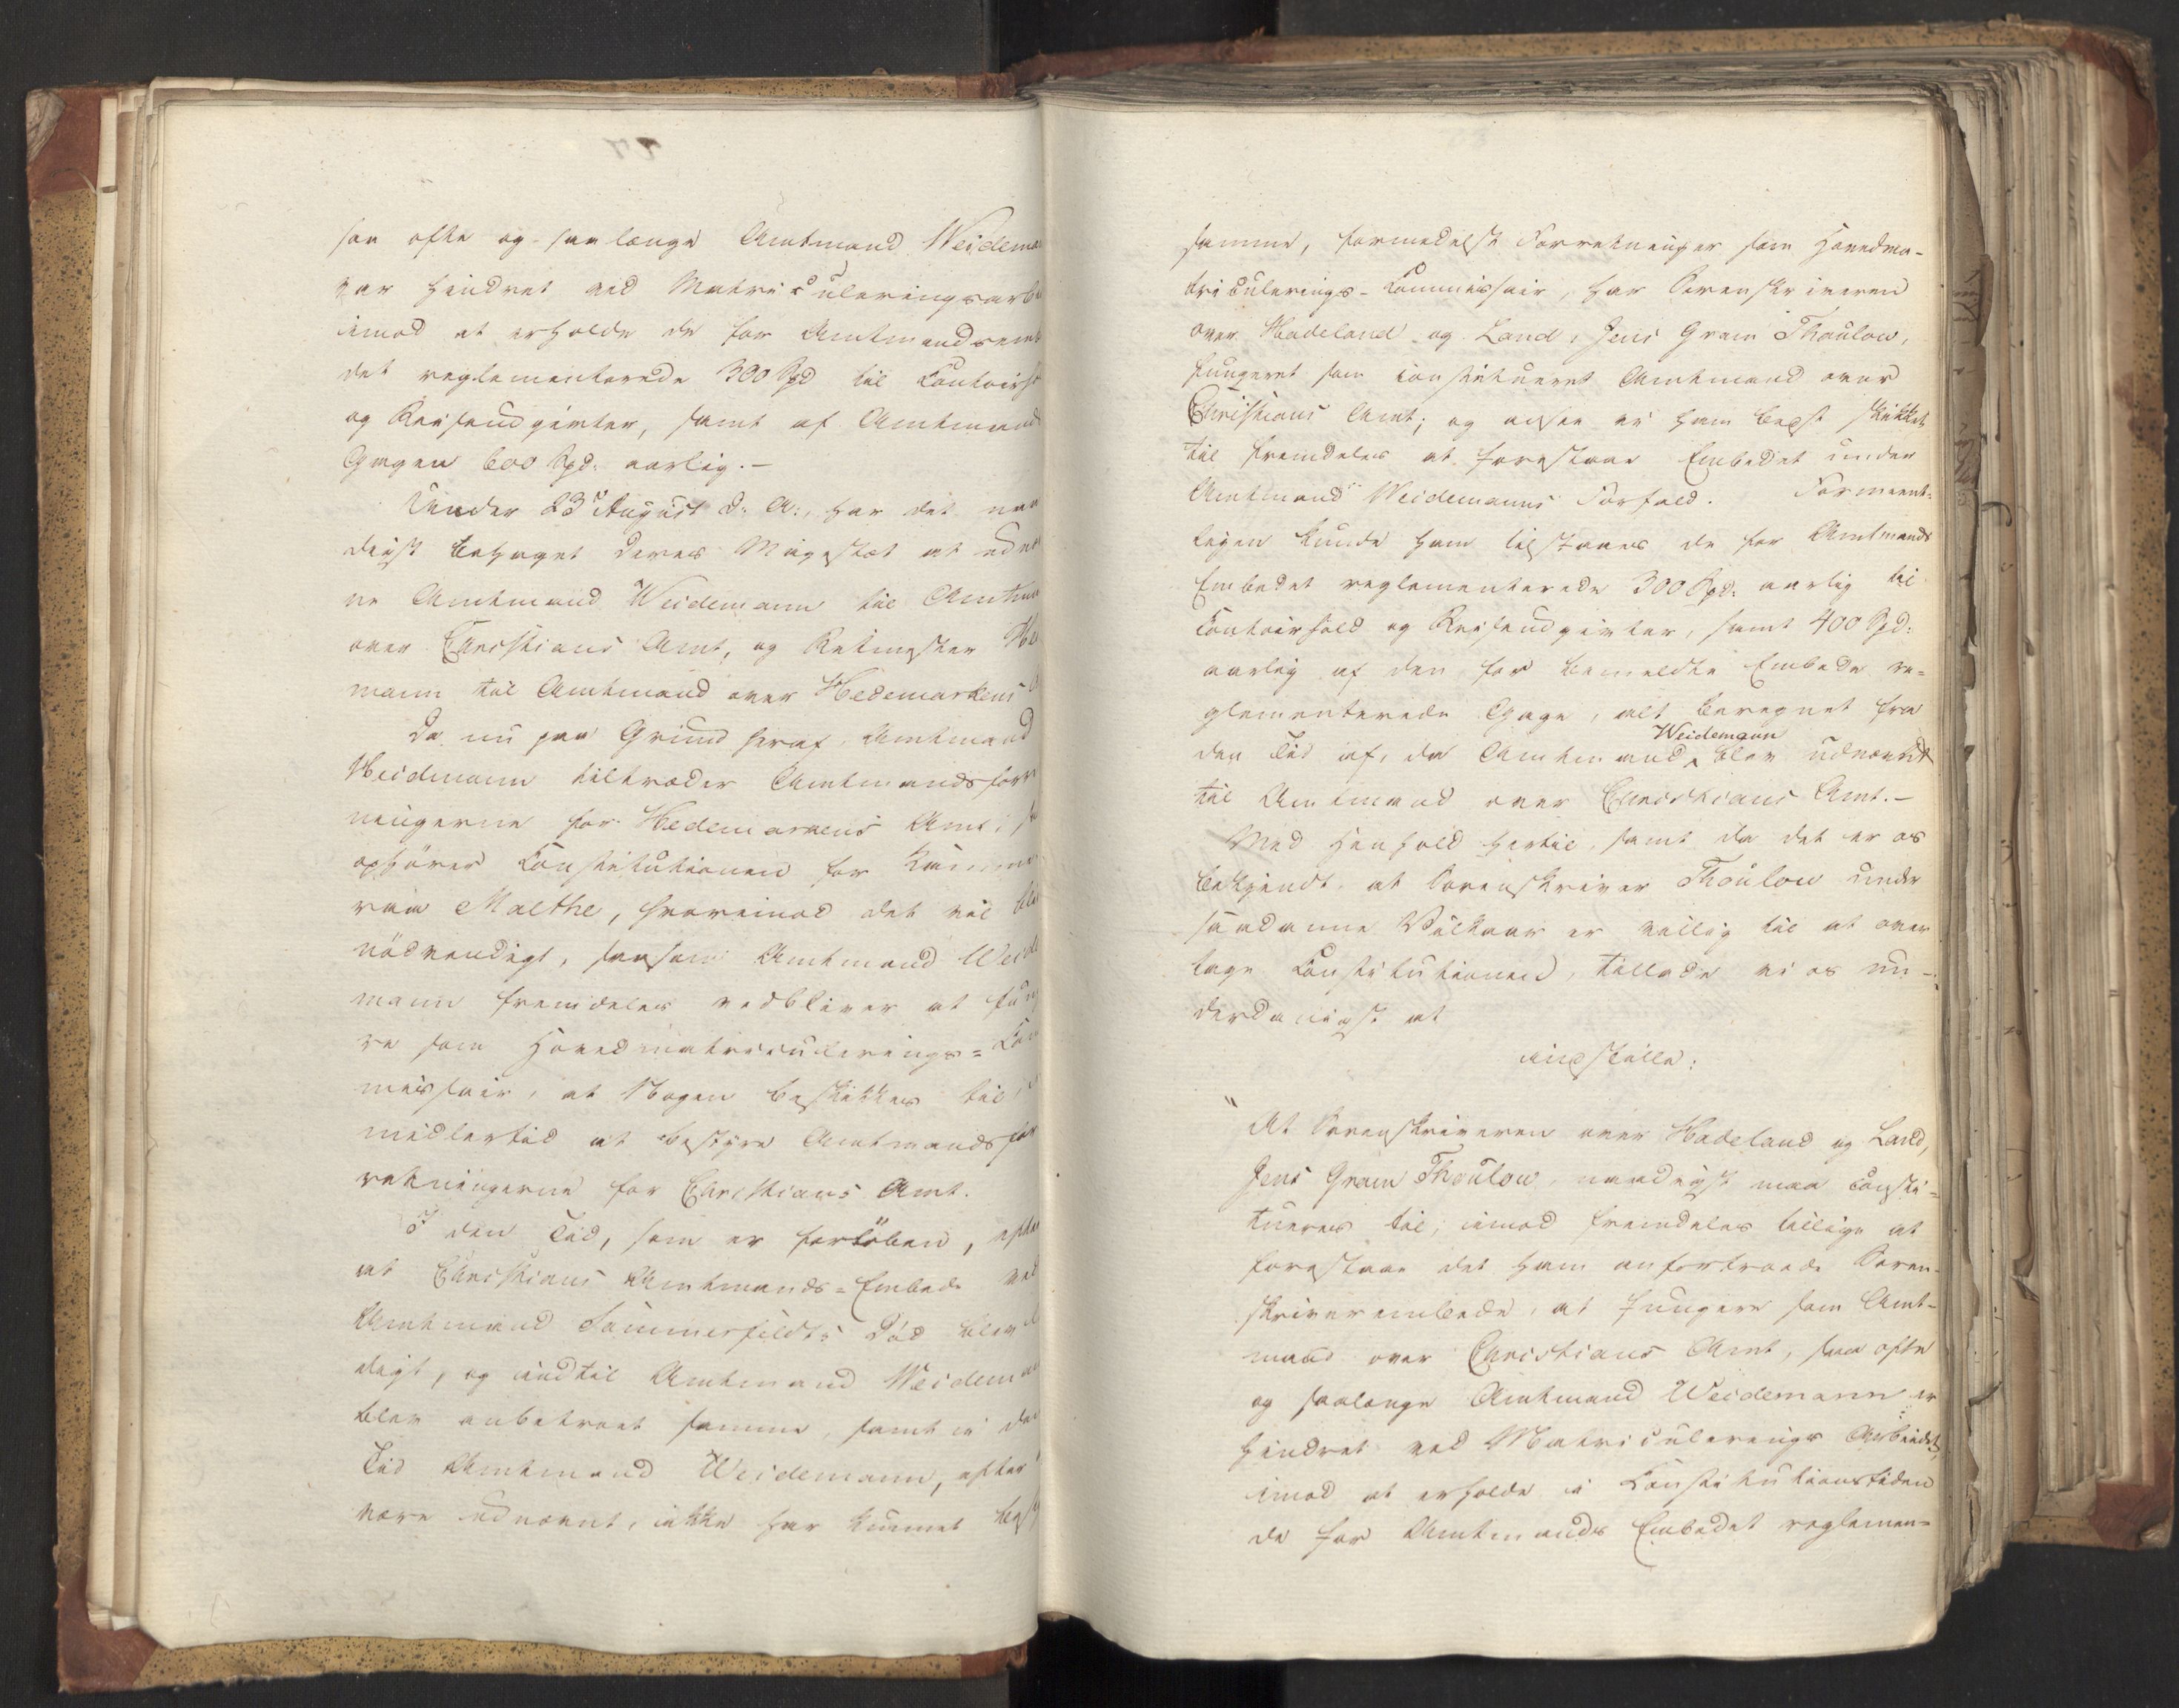 saa ofte og saalænge Amtmand Weidema
var hindret ved Matriculeringsarbe
imod at erholde de for Amtmandsemb
det reglementerede 300 Spd til Contoirh
og Reiseudgivter, samt af Amtmands
Gagen 600 Spd: aarlig.-
Under 23de August d: A:, har det naa
digst behaget Deres Majestæt at udnæv
ne Amtmand Weidemann til Amtm
over Christians Amt, og Ritmester
mann til Amtmand over Hedemarkens
Da nu paa Grund heraf Amtmand
Heidmann tiltræder Amtmandsforr
ningerne for Hedemarkens Amt, s
ophører Constitutionen for Kamme
raa Malthe, hvorimod det vil bli
nødvendigt, saasom Amtmand Weid
mann fremdeles vedbliver at fung
re som Hovedmatriculerings-Com
missair, at Nogen beskikkes til i
midlertid at bestyre Amtmandsfor
retningerne for Christians Amt.
I den Tid, som er forløben, efter
at Christians Amtmands-Embede ved
Amtmand Sommerfeldts Død blev
digt, og indtil Amtmand Weidem
blev anbetroet samme, samt i den
Tid Amtmand Weidemann, efter
være udnævnt, ikke har kunnet besty
samme, formedelst Forretninger som Hovedma-
triculerings-Commissair, har Sorenskriveren
over Hadeland og Land, Jens Gram Thaulow,
fungeret som constitueret Amtmand over
Christians Amt; og ansee vi ham best skikket
til fremdeles at forestaae Embedet under
Amtmand Weidemanns Forfald. Formeent-
ligen kunde ham tilstaaes de for Amtmands
Embedet reglementerede 300 Spd: aarlig til
Contoirhold og Reiseudgivter, samt 400 Spd:
aarlig af den for bemeldte Embede re-
glementerede Gage, alt beregnet fra
den Tid af, da Amtmand Weidemann blev udnævnt
til Amtmand over Christians Amt.-
Med Henhold hertil, samt da det er os
bekjendt, at Sorenskriver Thaulow under
saadanne Vilkaar er villig til at over
tage Constitutionen, tillade vi os un-
derdanigst at
indstille:
"At Sorenskriveren over Hadeland og Land,
Jens Gram Thaulow, naadigst maa consti-
tueres til, imod fremdeles tillige at
forestaae det ham anfortroede Soren-
skriverembede, at fungere som Amt-
mand over Christians Amt, saa ofte
og saalænge Amtmand Weidemann er
hindret ved Matriculerings Arbeidet,
imod at erholde i Constitutionstiden
de for Amtmands Embedet reglemen-